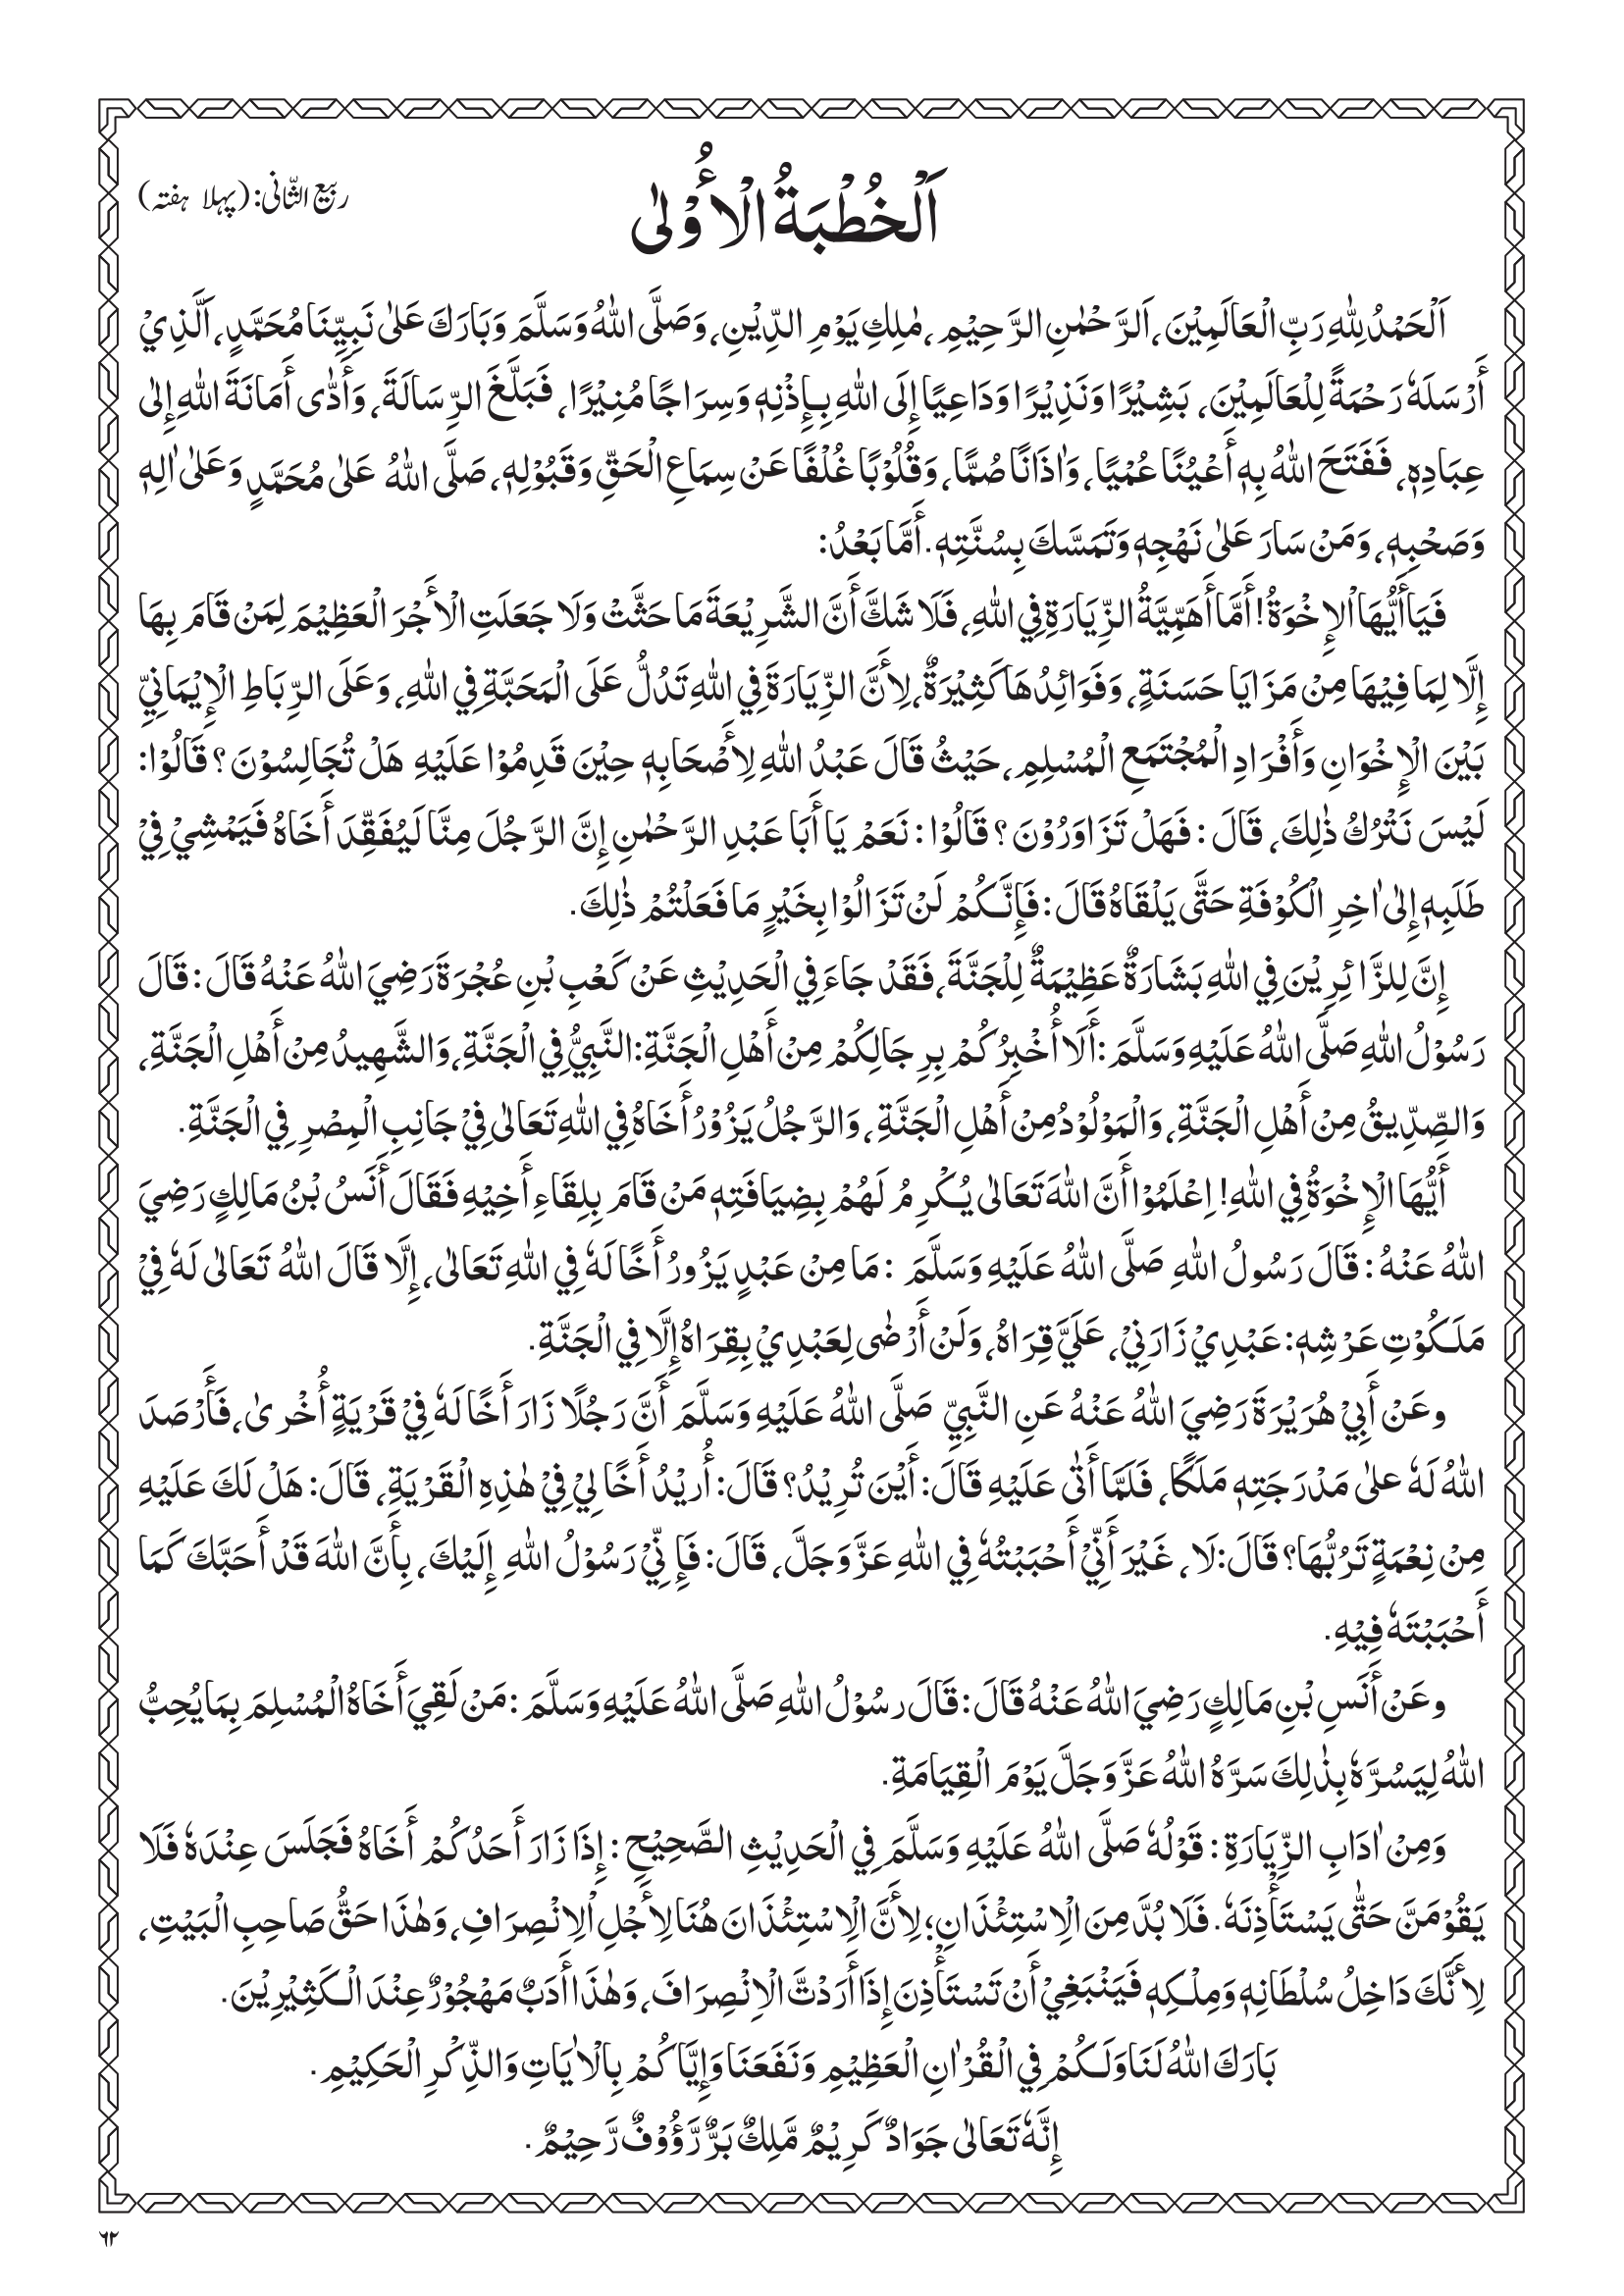 ربیع الثّانی: (پہلا ہفتہ)
اَلْخُطْبَةُ الْأُوْلٰى
اَلْحَمْدُ لِلّٰهِ رَبِّ الْعَالَمِيْنَ، اَلرَّحْمٰنِ الرَّحِيْمِ، مٰلِكِ يَوْمِ الدِّيْنِ، وَصَلَّى اللّٰهُ وَسَلَّمَ وَبَارَكَ عَلٰى نَبِيِّنَا مُحَمَّدٍ، اَلَّذِيْ
أَرْسَلَهٗ رَحْمَةً لِلْعَالَمِيْنَ، بَشِيْرًا وَنَذِيْرًا وَدَاعِيًا إِلَى اللّٰهِ بِإِذْنِهٖ وَسِرَاجًا مُنِيْرًا، فَبَلَّغَ الرِّسَالَةَ، وَأَدّٰى أَمَانَةَ اللّٰهِ إِلٰى
عِبَادِهٖ، فَفَتَحَ اللّٰهُ بِهٖ أَعْيُنًا عُمْيًا، وَاٰذَانًا صُمًّا، وَقُلُوْبًا غُلْفًا عَنْ سِمَاعِ الْحَقِّ وَقَبُوْلِهٖ، صَلَّى اللّٰهُ عَلٰى مُحَمَّدٍ وَعَلٰى اٰلِهٖ
وَصَحْبِهٖ، وَمَنْ سَارَ عَلٰى نَهْجِهٖ وَتَمَسَّكَ بِسُنَّتِهٖ. أَمَّا بَعْدُ:
فَيَا أَيُّهَا الْإِخْوَةُ! أَمَّا أَهَمِّيَّةُ الزِّيَارَةِ فِي اللّٰهِ، فَلَا شَكَّ أَنَّ الشَّرِيْعَةَ مَا حَثَّتْ وَلَا جَعَلَتِ الْأَجْرَ الْعَظِيْمَ لِمَنْ قَامَ بِهَا
إِلَّا لِمَا فِيْهَا مِنْ مَزَايَا حَسَنَةٍ، وَفَوَائِدُهَا كَثِيْرَةٌ، لِأَنَّ الزِّيَارَةَ فِي اللّٰهِ تَدُلُّ عَلَى الْمَحَبَّةِ فِي اللّٰهِ، وَعَلَى الرِّبَاطِ الْإِيْمَانِيِّ
بَيْنَ الْإِخْوَانِ وَأَفْرَادِ الْمُجْتَمَعِ الْمُسْلِمِ، حَيْثُ قَالَ عَبْدُ اللّٰهِ لِأَصْحَابِهٖ حِيْنَ قَدِمُوْا عَلَيْهِ هَلْ تُجَالِسُوْنَ؟ قَالُوْا:
لَيْسَ نَتْرُكُ ذٰلِكَ، قَالَ: فَهَلْ تَزَاوَرُوْنَ؟ قَالُوْا: نَعَمْ يَا أَبَا عَبْدِ الرَّحْمٰنِ إِنَّ الرَّجُلَ مِنَّا لَيُفَقِّدَ أَخَاهُ فَيَمْشِيْ فِيْ
طَلَبِهٖ إِلٰى اٰخِرِ الْكُوْفَةِ حَتَّى يَلْقَاهُ قَالَ: فَإِنَّكُمْ لَنْ تَزَالُوْا بِخَيْرٍ مَا فَعَلْتُمْ ذٰلِكَ.
إِنَّ لِلزَّائِرِيْنَ فِي اللّٰهِ بَشَارَةٌ عَظِيْمَةٌ لِلْجَنَّةَ، فَقَدْ جَاءَ فِي الْحَدِيْثِ عَنْ كَعْبِ بْنِ عُجْرَةَ رَضِيَ اللّٰهُ عَنْهُ قَالَ: قَالَ
رَسُوْلُ اللّٰهِ صَلَّى اللّٰهُ عَلَيْهِ وَسَلَّمَ: أَلَا أُخْبِرُكُمْ بِرِجَالِكُمْ مِنْ أَهْلِ الْجَنَّةِ: النَّبِيُّ فِي الْجَنَّةِ، وَالشَّهِيدُ مِنْ أَهْلِ الْجَنَّةِ،
وَالصِّدِّيقُ مِنْ أَهْلِ الْجَنَّةِ، وَالْمَوْلُوْدُ مِنْ أَهْلِ الْجَنَّةِ، وَالرَّجُلُ يَزُوْرُ أَخَاهُ فِي اللّٰهِ تَعَالٰى فِيْ جَانِبِ الْمِصْرِ فِي الْجَنَّةِ.
أَيُّهَا الْإِخْوَةُ فِي اللّٰهِ! اِعْلَمُوْا أَنَّ اللّٰهَ تَعَالٰى يُكْرِمُ لَهُمْ بِضِيَافَتِهٖ مَنْ قَامَ بِلِقَاءِ أَخِيْهِ فَقَالَ أَنَسُ بْنُ مَالِكٍ رَضِيَ
اللّٰهُ عَنْهُ: قَالَ رَسُولُ اللّٰهِ صَلَّى اللّٰهُ عَلَيْهِ وَسَلَّمَ: مَا مِنْ عَبْدٍ يَزُورُ أَخًا لَهٗ فِي اللّٰهِ تَعَالٰى، إِلَّا قَالَ اللّٰهُ تَعَالٰى لَهٗ فِيْ
مَلَكُوْتِ عَرْشِهٖ: عَبْدِيْ زَارَنِيْ، عَلَيَّ قِرَاهُ، وَلَنْ أَرْضٰى لِعَبْدِيْ بِقِرَاهُ إِلَّا فِي الْجَنَّةِ.
وعَنْ أَبِيْ هُرَيْرَةَ رَضِيَ اللّٰهُ عَنْهُ عَنِ النَّبِيِّ صَلَّى اللّٰهُ عَلَيْهِ وَسَلَّمَ أَنَّ رَجُلًا زَارَ أَخًا لَهٗ فِيْ قَرْيَةٍ أُخْرىٰ، فَأَرْصَدَ
اللّٰهُ لَهٗ عَلىٰ مَدْرَجَتِهٖ مَلَكًا، فَلَمَّا أَتٰى عَلَيْهِ قَالَ: أَيْنَ تُرِيْدُ؟ قَالَ: أُرِيْدُ أَخًا لِيْ فِيْ هٰذِهِ الْقَرْيَةِ، قَالَ: هَلْ لَكَ عَلَيْهِ
مِنْ نِعْمَةٍ تَرُبُّهَا؟ قَالَ: لَا، غَيْرَ أَنِّيْ أَحْبَبْتُهٗ فِي اللّٰهِ عَزَّ وَجَلَّ، قَالَ: فَإِنِّيْ رَسُوْلُ اللّٰهِ إِلَيْكَ، بِأَنَّ اللّٰهَ قَدْ أَحَبَّكَ كَمَا
أَحْبَبْتَهٗ فِيْهِ.
وعَنْ أَنَسِ بْنِ مَالِكٍ رَضِيَ اللّٰهُ عَنْهُ قَالَ: قَالَ رسُوْلُ اللّٰهِ صَلَّى اللّٰهُ عَلَيْهِ وَسَلَّمَ: مَنْ لَقِيَ أَخَاهُ الْمُسْلِمَ بِمَا يُحِبُّ
اللّٰهُ لِيَسُرَّهٗ بِذٰلِكَ سَرَّهُ اللّٰهُ عَزَّ وَجَلَّ يَوْمَ الْقِيَامَةِ.
وَمِنْ اٰدَابِ الزِّيَارَةِ: قَوْلُهٗ صَلَّى اللّٰهُ عَلَيْهِ وَسَلَّمَ فِي الْحَدِيْثِ الصَّحِيْحِ: إِذَا زَارَ أَحَدُكُمْ أَخَاهُ فَجَلَسَ عِنْدَهٗ فَلَا
يَقُوْمَنَّ حَتّٰى يَسْتَأْذِنَهٗ. فَلَا بُدَّ مِنَ الْاِسْتِئْذَانِ؛ لِأَنَّ الْاِسْتِئْذَانَ هُنَا لِأَجْلِ الْاِنْصِرَافِ، وَهٰذَا حَقُّ صَاحِبِ الْبَيْتِ،
لِأَنَّكَ دَاخِلُ سُلْطَانِهٖ وَمِلْكِهٖ فَيَنْبَغِيْ أَنْ تَسْتَأْذِنَ إِذَا أَرَدْتَّ الْاِنْصِرَافَ، وَهٰذَا أَدَبٌ مَهْجُوْرٌ عِنْدَ الْكَثِيْرِيْنَ.
بَارَكَ اللّٰهُ لَنَا وَلَكُمْ فِي الْقُرْاٰنِ الْعَظِيْمِ وَنَفَعَنَا وَإِيَّاكُمْ بِالْاٰيَاتِ وَالذِّكْرِ الْحَكِيْمِ.
إِنَّهٗ تَعَالٰى جَوَادٌ كَرِيْمٌ مَّلِكٌ بَرٌّ رَّؤُوْفٌ رَّحِيْمٌ.
٦٢